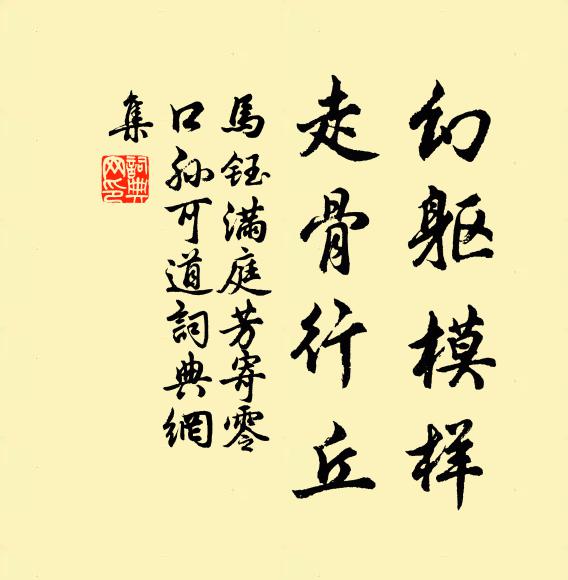 幻躯模样
走骨行丘
馬鈺滿庭芳寄零
口孙可道詞典網
集
詞典网印